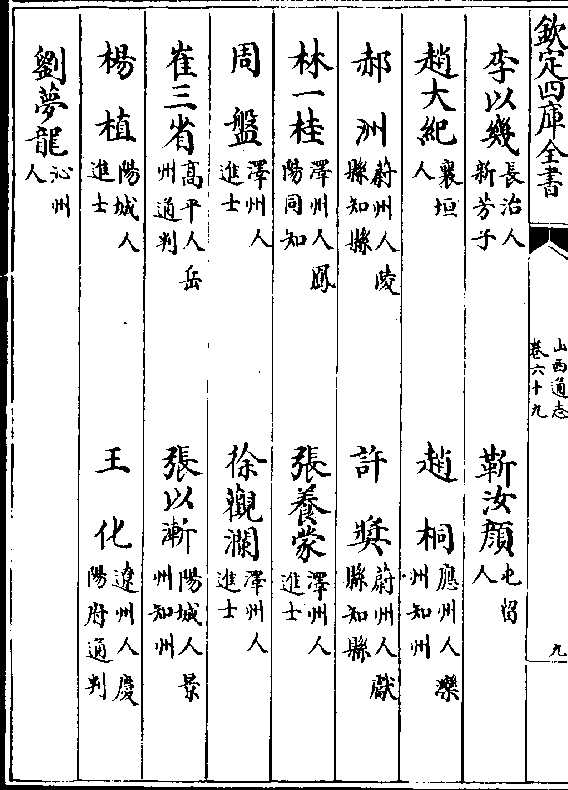 欽定四庫全書
山西通志
卷六十九
九
李以幾 長治人新芳子 靳汝顔 屯留人
趙大紀 襄垣人 趙桐 應州人灤州知州
郝洲 蔚州人陵縣知縣 許奬 蔚州人獻縣知縣
林一桂 澤州人鳳陽同知 張養蒙 澤州人進士
周盤 澤州人進士 徐觀瀾 澤州人進士
崔三省 高平人岳州通判 張以漸 陽城人景州知州
楊植 陽城人進士 王化 遼州人慶陽府通判
劉夢龍 沁州人